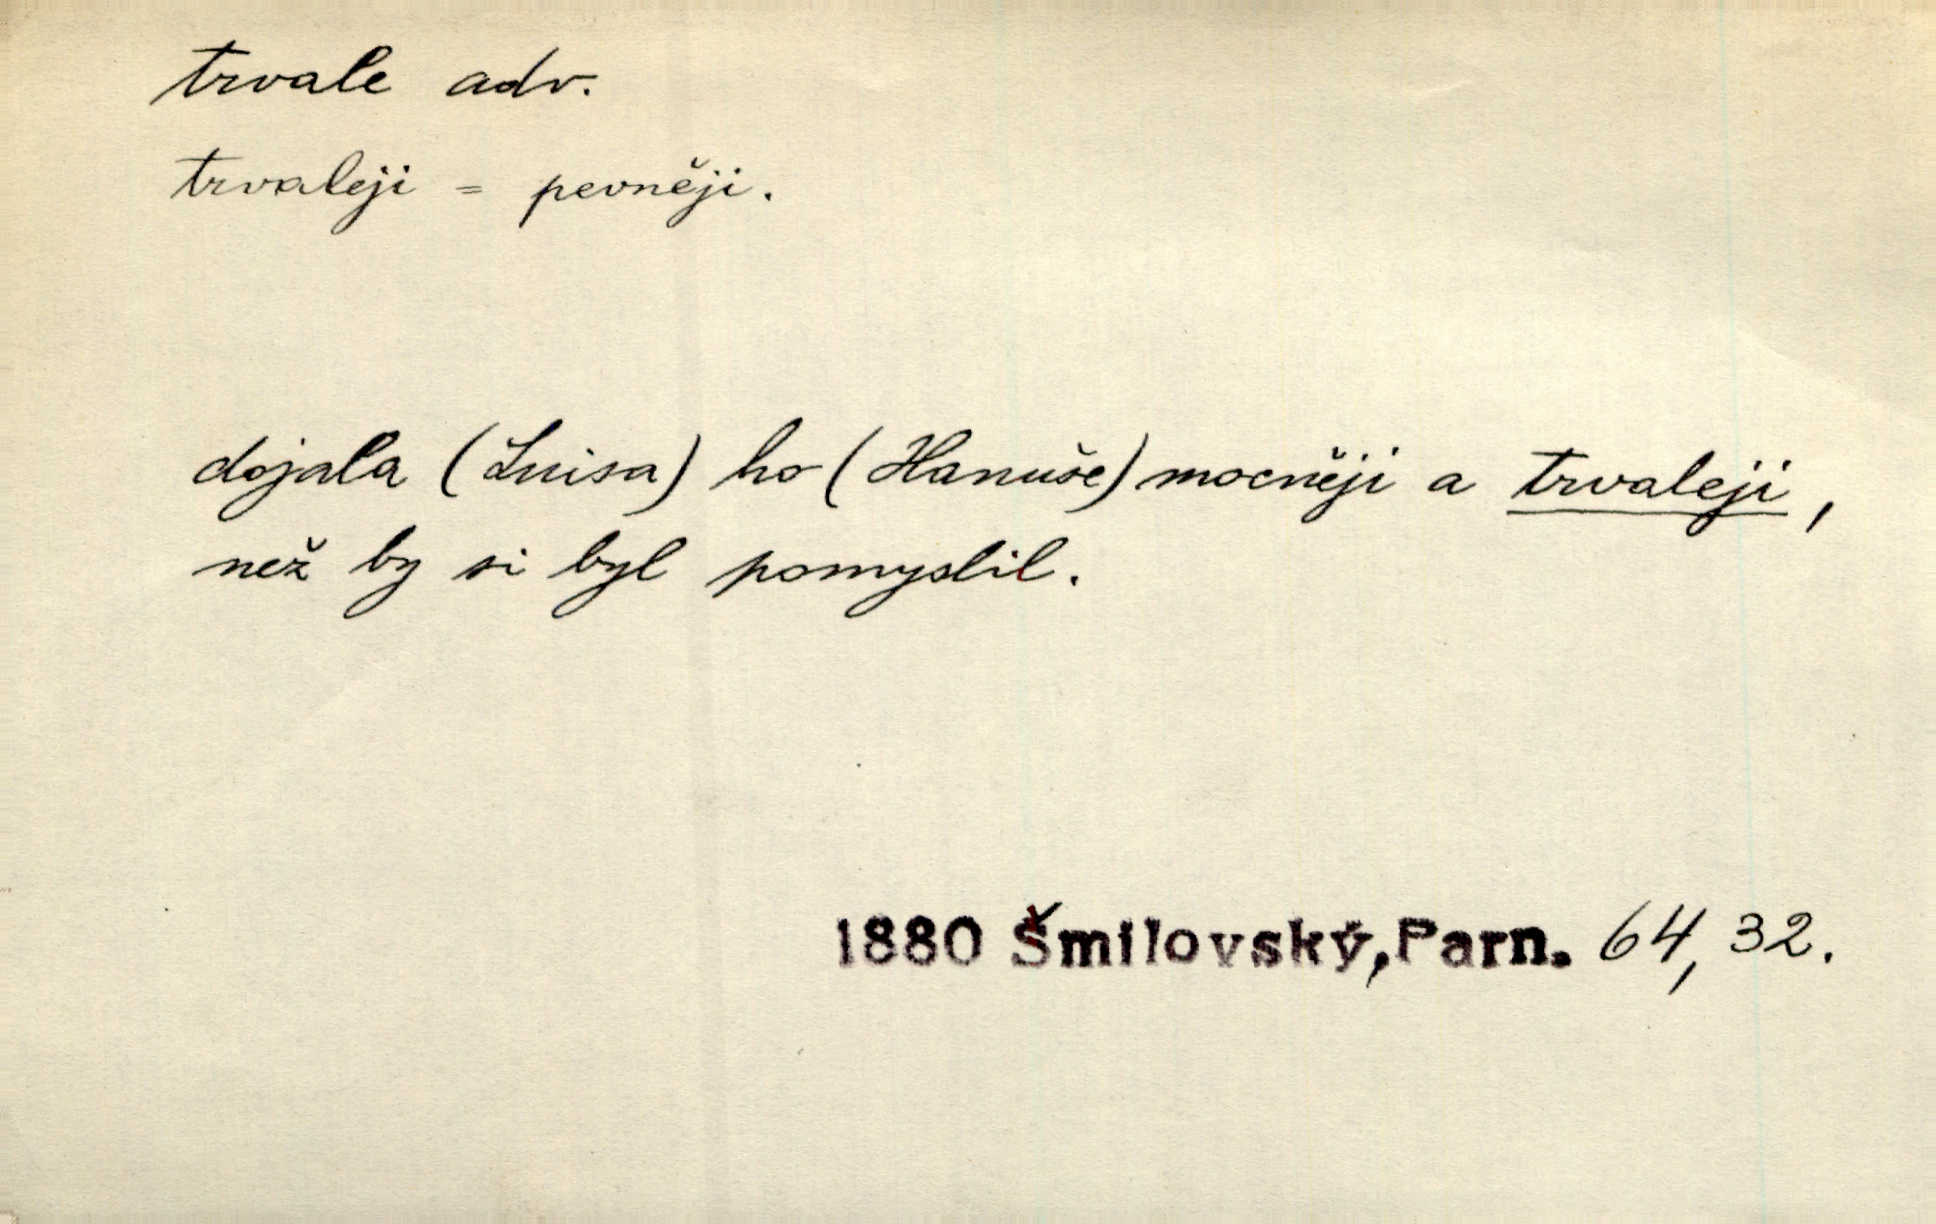 trvale adv.
trvaleji = pevněji.
dojala (Luisa) ho (Hanuše) mocněji a trvaleji,
než by si byl pomyslil.
1880 Šmilovský, Parn. 64, 32.